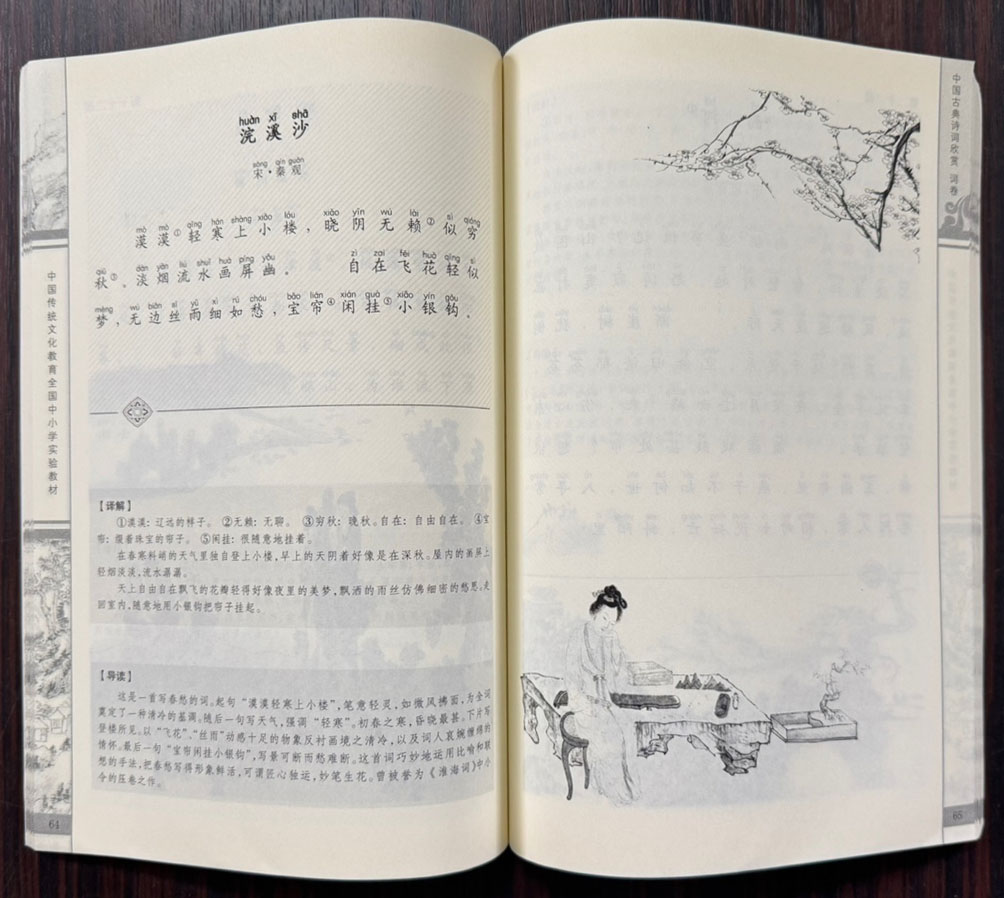 huàn xī shā
浣溪沙
sòng qín guān
宋·秦观
mò mò qīng hán shàng xiǎo lóu xiǎo yīn wú lài sì qióng
漠漠①轻寒上小楼，晓阴无赖②似穷
qiū dàn yān liú shuǐ huà píng yōu zì zai fēi huā qīng sì
秋③。淡烟流水画屏幽。 自在飞花轻似
mèng wú biān sī yǔ xì rú chóu bǎo lián xián guà xiǎo yín gōu
梦，无边丝雨细如愁，宝帘④闲挂⑤小银钩。
【译解】
①漠漠：辽远的样子。 ②无赖：无聊。 ③穷秋：晚秋。自在：自由自在。 ④宝
帘：缀着珠宝的帘子。 ⑤闲挂：很随意地挂着。
在春寒料峭的天气里独自登上小楼，早上的天阴着好像是在深秋。屋内的画屏上
轻烟淡淡，流水潺潺。
天上自由自在飘飞的花瓣轻得好像夜里的美梦，飘洒的雨丝仿佛细密的愁思。走
回室内，随意地用小银钩把帘子挂起。
【导读】
这是一首写春愁的词。起句“漠漠轻寒上小楼”，笔意轻灵，如微风拂面，为全词
奠定了一种清冷的基调。随后一句写天气，强调“轻寒”。初春之寒，昏晓最甚。下片写
登楼所见。以“飞花”、“丝雨”动感十足的物象反衬画境之清冷，以及词人哀婉缠绵的
情怀。最后一句“宝帘闲挂小银钩”，写景可断而愁难断。这首词巧妙地运用比喻和联
想的手法，把春愁写得形象鲜活，可谓匠心独运，妙笔生花。曾被誉为《淮海词》中小
令的压卷之作。
中国传统文化教育全国中小学实验教材
64
中国古典诗词欣赏 词卷
65